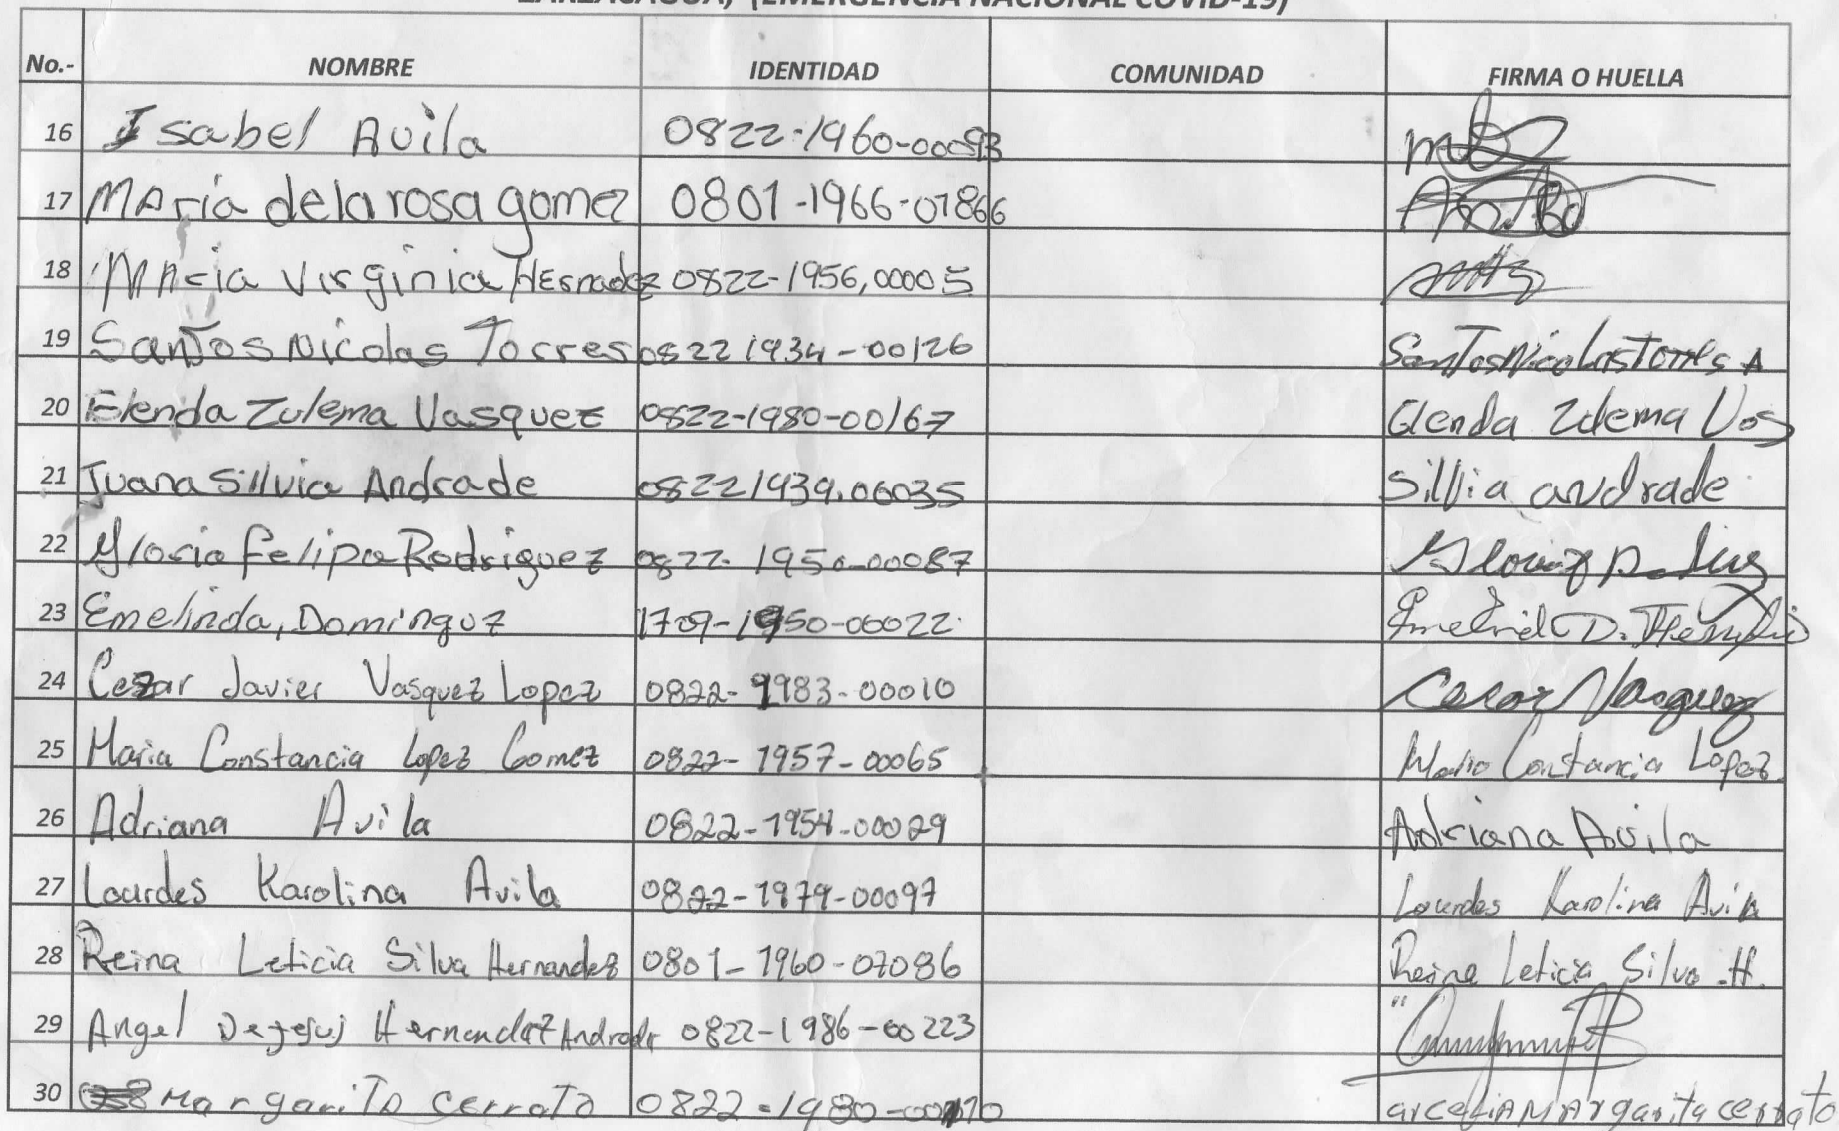 (EMERGENCIA NACIONAL COVID-19)
No.- NOMBRE IDENTIDAD COMUNIDAD FIRMA O HUELLA
16 Isabel Avila 0822-1960-00093
17 Maria de la rosa gomez 0801-1966-07866
18 Maria Virginia Hernadez 0822-1956,00005
19 Santos Nicolas Torres 0822 1934-00126 Santos Nicolas Torres A
20 Elenda Zulema Vasquez 0822-1980-00167 Glenda Zulema Vas
21 Juana Silluia Andrade 0822 1939.06035 Silbia andrade
22 Gloria Felipa Rodriguez 0822-1950-00087
23 Emelinda, Domínguz 1709-1950-00022
24 Cezar Javier Vasquez Lopez 0822-1983-00010 Cesar Vasquez
25 Maria Constancia Lopez Gomez 0822-1957-00065 Maria Constancia Lopez
26 Adriana Avila 0822-1954-00029 Adriana Avila
27 Lourdes Karolina Avila 0822-1979-00097 Lourdes Karolina Avila
28 Reina Leticia Silva Hernandez 0801-1960-07086 Reina Leticia Silva H.
29 Angel Dejesus Hernandez Andrade 0822-1986-00223
30 Margarita cerrato 0822-1980- arcelia Margarita cerrato